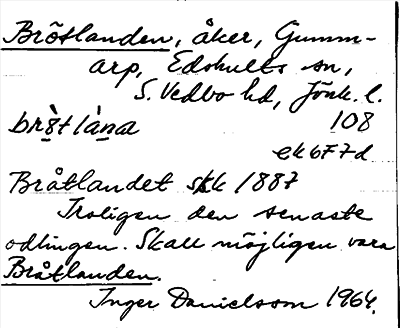 Brötlanden, åker, Gumm-
arp, Edshults sn,
S. Vedbo hd, Jönk. l.
brö̀tlàna 108
ek 6F7d
Bråtlandet skk 1887
Troligen den senaste
odlingen. Skall möjligen vara
Bråtlanden.
Inger Danielsson 1964.